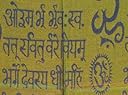 ओउम भूर्भुवः स्वः
तत्सवितुर्वरेण्यम्
भर्गो देवस्य धीमहि
ॐ